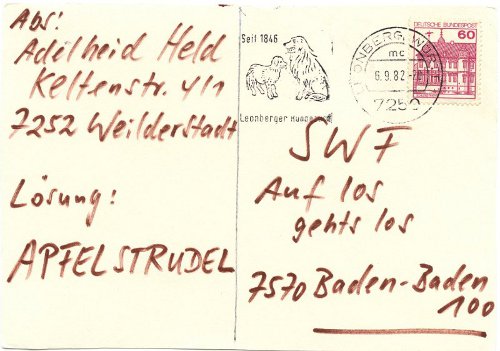 Abs:
Adelheid Held
Keltenstr. 4/1
7252 Weilderstadt
Lösung:
APFELSTRUDEL
Seit 1846
Leonberger Hunde
LEONBERG, WÜRTT
mc
6.9.82-20
7250
DEUTSCHE BUNDESPOST
60
SWF
Auf los
gehts los
7570 Baden-Baden
100